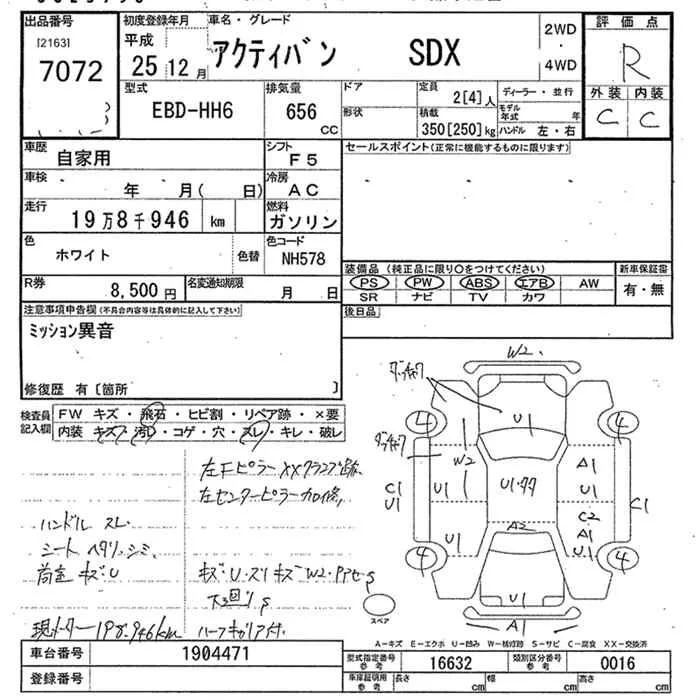 出品番号
[2163]
7072
初度登録年月
平成
25 12 月
車名・グレード
アクティバン SDX
2WD
・
4WD
評価点
R
外装 内装
C C
型式
EBD-HH6
排気量
656 CC
ドア
形状
定員
2[4]人
積載
350[250]kg
ディーラー・並行
モデル年式 年
ハンドル 左・右
車歴
自家用
シフト
F5
車検
年 月( 日)
冷房
AC
走行
19万8千946 km
燃料
ガソリン
色
ホワイト
色替
色コード
NH578
R券
8,500円
名変通知期限
月 日
セールスポイント(正常に機能するものに限ります)
装備品(純正品に限り○をつけてください)
PS PW ABS エアB AW
SR ナビ TV カワ
新車保証書
有・無
後日品
注意事項申告欄(不具合内容等は具体的に記入して下さい)
ミッション異音
修復歴 有〔箇所 〕
検査員記入欄
FW キズ・飛石・ヒビ割・リペア跡・×要
内装 キズ・汚レ・コゲ・穴・スレ・キレ・破レ
左Fピラー XXクランプ跡
左センターピラー加修
ハンドル スレ
シート ヘタリ・シミ
荷室 キズ・U
キズ・U・スリキズ W2・
下回り S
現メーター198.946km
W2
U1
4 4
W2
C1
U1
U1
U1
A1
U1
C2
A1
U1
C1
U1
A2
4 4
U1
A1
スペア
A-キズ E-エクボ U-凹み W-補修跡 S-サビ C-腐食 XX-交換済
車台番号
1904471
登録番号
型式指定番号
参考
16632
類別区分番号
参考
0016
車庫証明用
参考
長さ cm
幅 cm
高さ cm